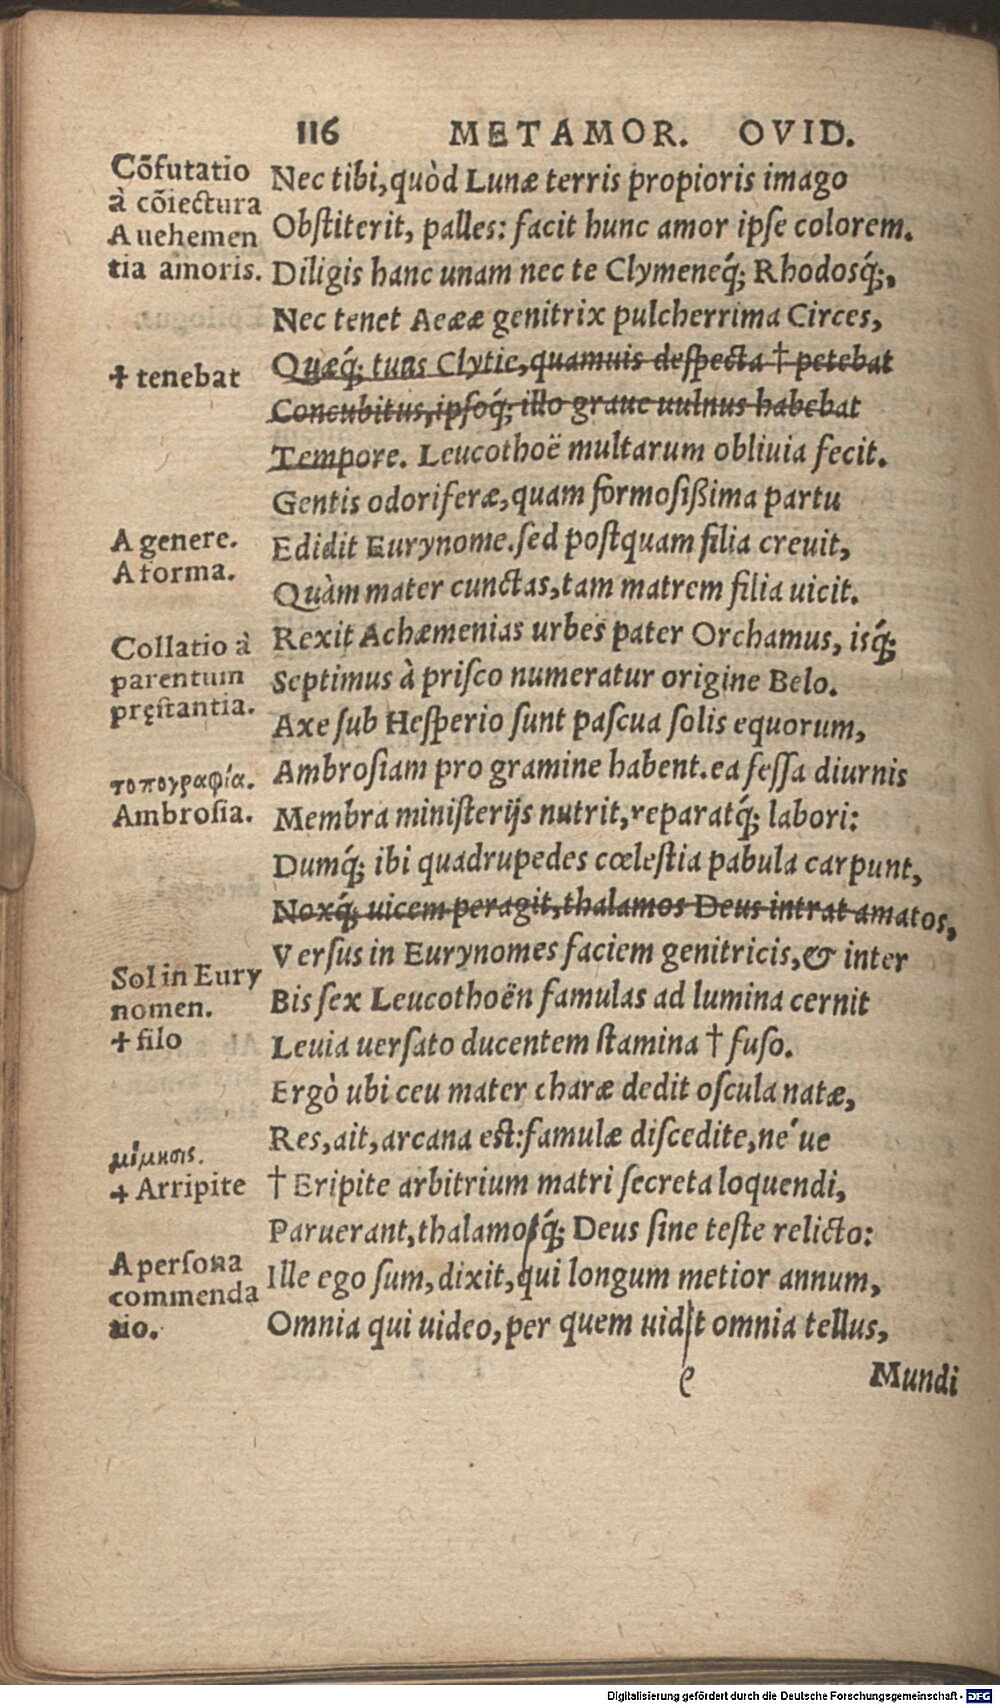 116 METAMOR. OVID.
Cõfutatio
à cõiectura
A uehemen
tia amoris.
Nec tibi, quòd Lunæ terris propioris imago
Obſtiterit, palles: facit hunc amor ipſe colorem.
Diligis hanc unam nec te Clymeneq́;, Rhodosq́;,
Nec tenet Aeææ genitrix pulcherrima Circes,
✝ tenebat
Quæq́; tuos Clytie, quamuis deſpecta † petebat
Concubitus, ipſoq́; illo graue uulnus habebat
Tempore. Leucothoë multarum obliuia fecit.
Gentis odoriferæ, quam formoſißima partu
A genere.
A forma.
Edidit Eurynome. ſed poſtquam filia creuit,
Quàm mater cunctas, tam matrem filia uicit.
Collatio à
parentum
pręſtantia.
Rexit Achæmenias urbes pater Orchamus, isq́;
Septimus à priſco numeratur origine Belo.
Axe ſub Heſperio ſunt paſcua ſolis equorum,
τοπογραφία.
Ambroſia.
Ambroſiam pro gramine habent. ea feſſa diurnis
Membra miniſterijs nutrit, reparatq́; labori:
Dumq́; ibi quadrupedes cœleſtia pabula carpunt,
Noxq́; uicem peragit, thalamos Deus intrat amatos,
Verſus in Eurynomes faciem genitricis, & inter
Sol in Eury
nomen.
✝ filo
Bis ſex Leucothoën famulas ad lumina cernit
Leuia uerſato ducentem ſtamina † fuſo.
Ergò ubi ceu mater charæ dedit oſcula natæ,
Res, ait, arcana est: famulæ diſcedite, ne´ue
μίμησις.
✝ Arripite
† Eripite arbitrium matri ſecreta loquendi,
Paruerant, thalamoq́; Deus ſine teſte relicto:
A perſona
commenda
tio.
Ille ego ſum, dixit, qui longum metior annum,
Omnia qui uideo, per quem uidit omnia tellus,
e
Mundi
Digitalisierung gefördert durch die Deutsche Forschungsgemeinschaft - DFG